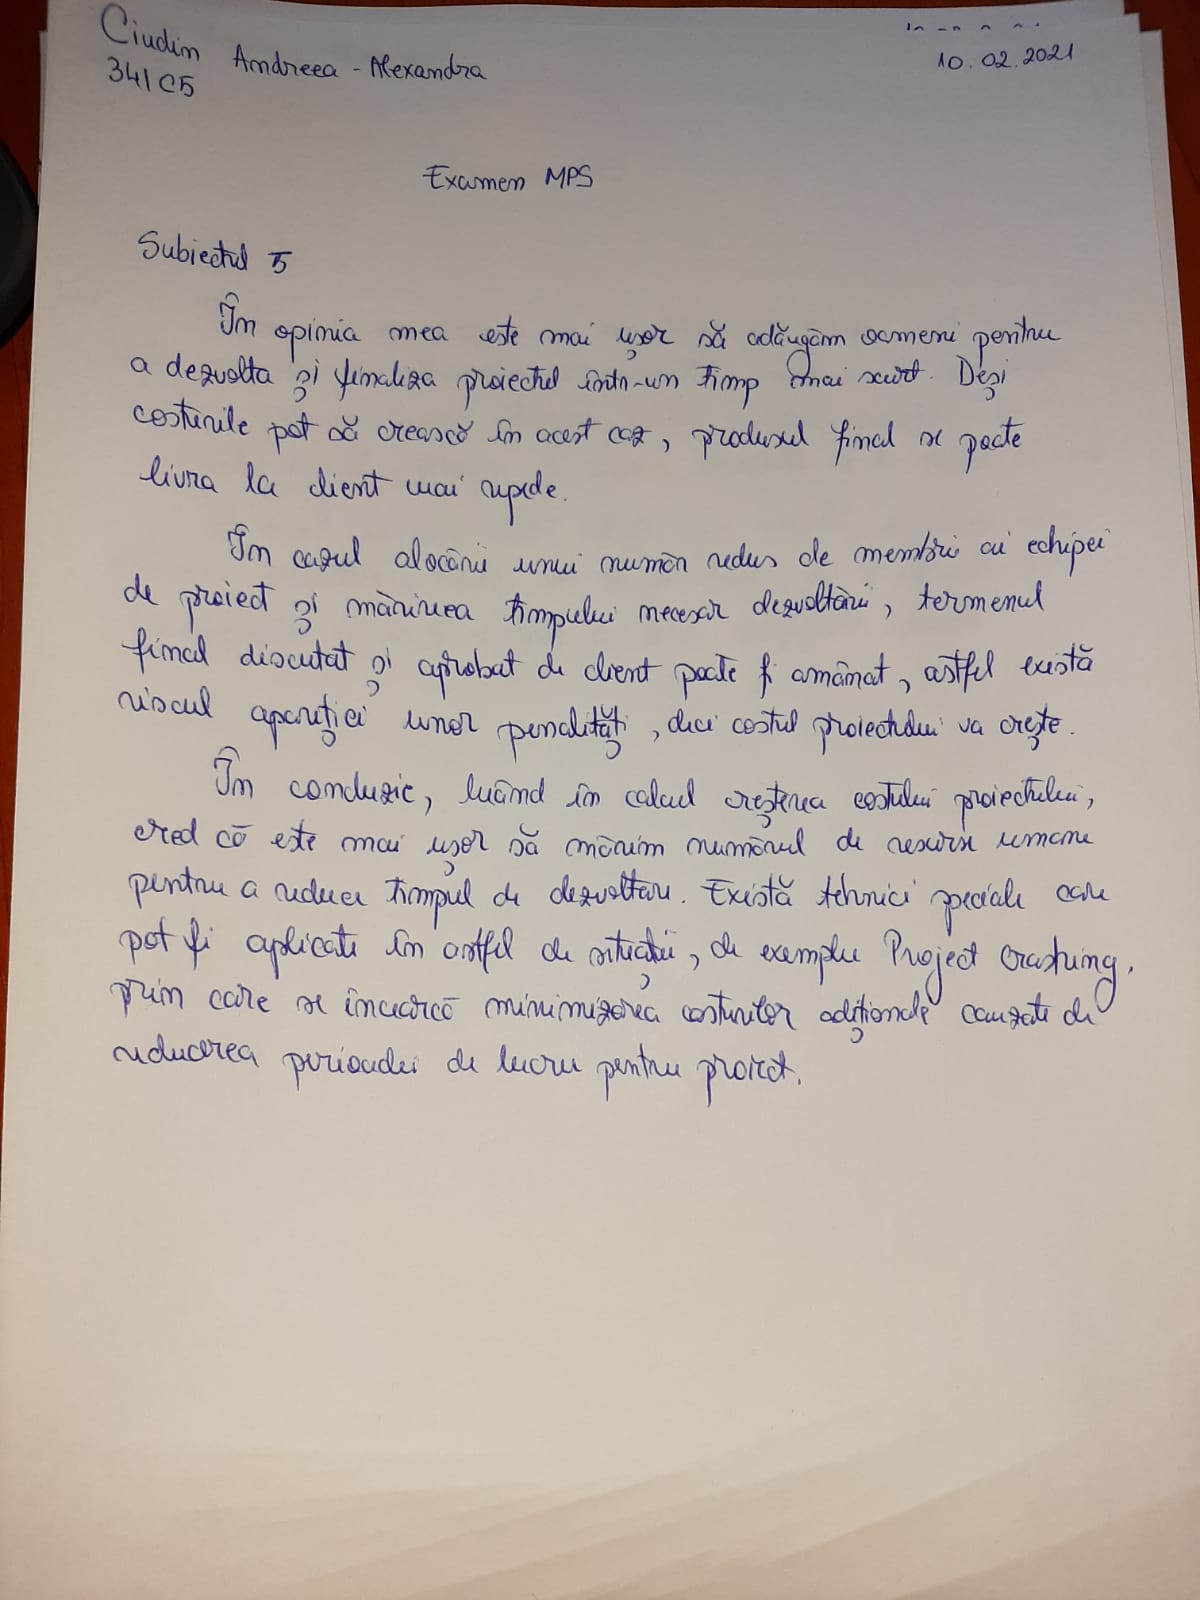 Ciudin Andreea - Alexandra
341C5
10.02.2021
Examen MPS
Subiectul 5
În opinia mea este mai ușor să adăugăm oameni pentru
a dezvolta și finaliza proiectul într-un timp mai scurt. Deși
costurile pot să crească în acest caz, produsul final se poate
livra la client mai repede.
În cazul alocării unui număr redus de membri ai echipei
de proiect și mărirea timpului necesar dezvoltării, termenul
final discutat și aprobat de client poate fi amânat, astfel există
riscul apariției unor penalități, deci costul proiectului va crește.
În concluzie, luând în calcul creșterea costului proiectului,
cred că este mai ușor să mărim numărul de resurse umane
pentru a reduce timpul de dezvoltare. Există tehnici speciale care
pot fi aplicate în astfel de situații, de exemplu Project Crashing,
prin care se încearcă minimizarea costurilor adiționale cauzate de
reducerea perioadei de lucru pentru proiect.